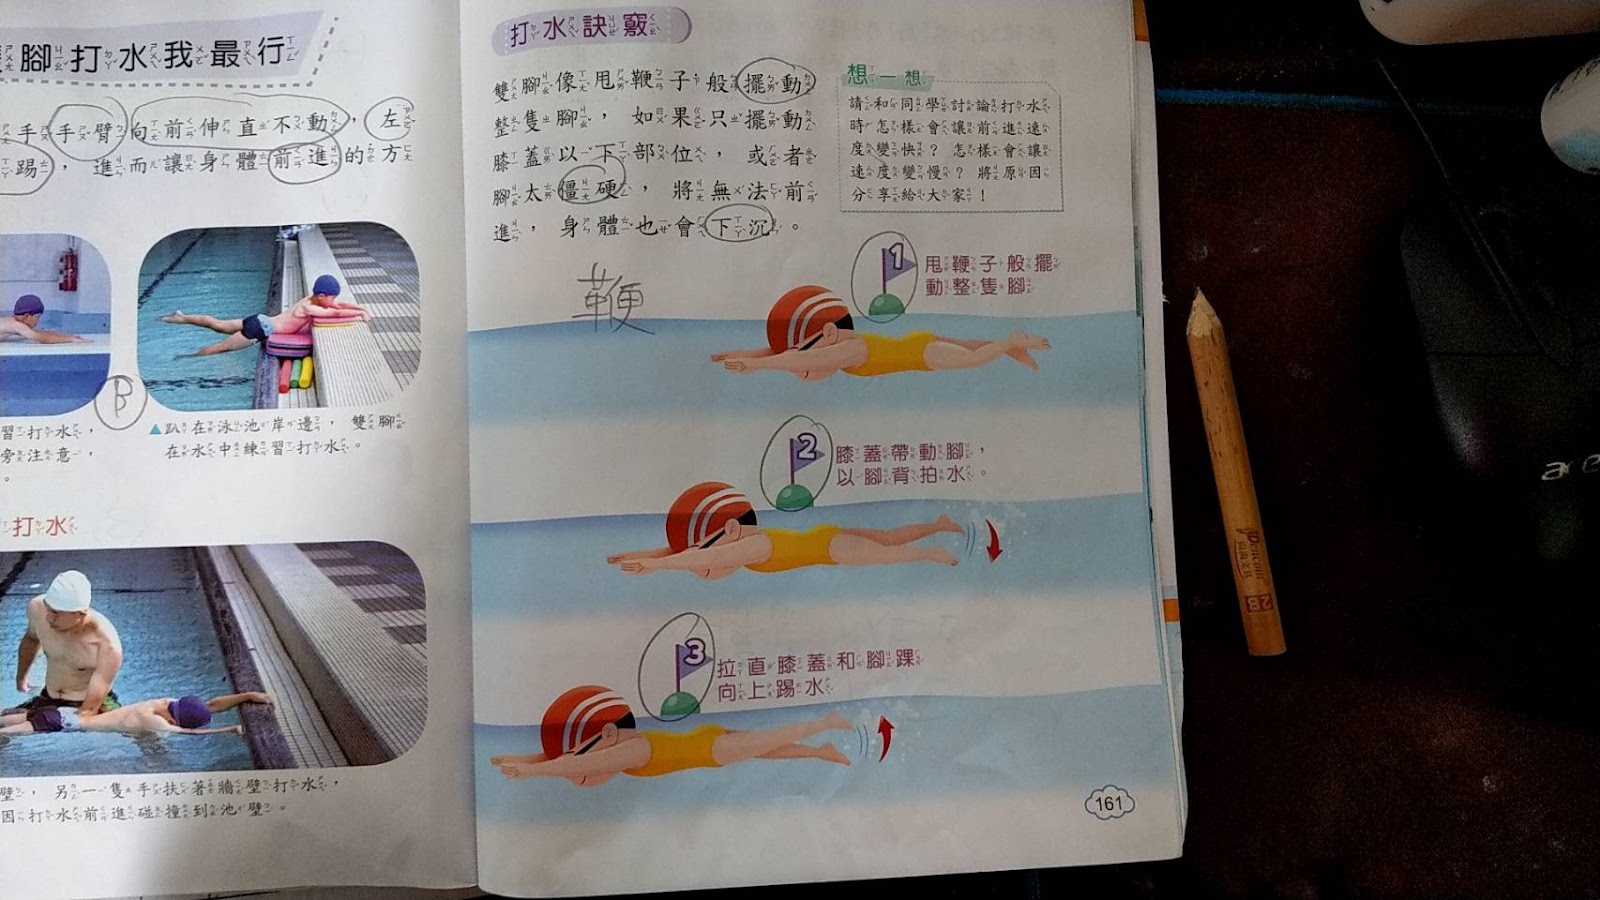 腳打水我最行
手手臂向前伸直不動，左
踢，進而讓身體前進的方
B
習打水，
旁注意，
。
▲趴在泳池岸邊，雙腳
在水中練習打水。
打水
壁，另一隻手扶著牆壁打水，
因打水前進碰撞到池壁。
打水訣竅
雙腳像甩鞭子般擺動
整隻腳，如果只擺動
膝蓋以下部位，或者
腳太僵硬，將無法前
進，身體也會下沉。
鞭
想一想
請和同學討論打水
時怎樣會讓前進速
度變快？怎樣會讓
速度變慢？將原因
分享給大家！
1
甩鞭子般擺
動整隻腳
2
膝蓋帶動腳，
以腳背拍水。
3
拉直膝蓋和腳踝
向上踢水
161
Pencom
2B